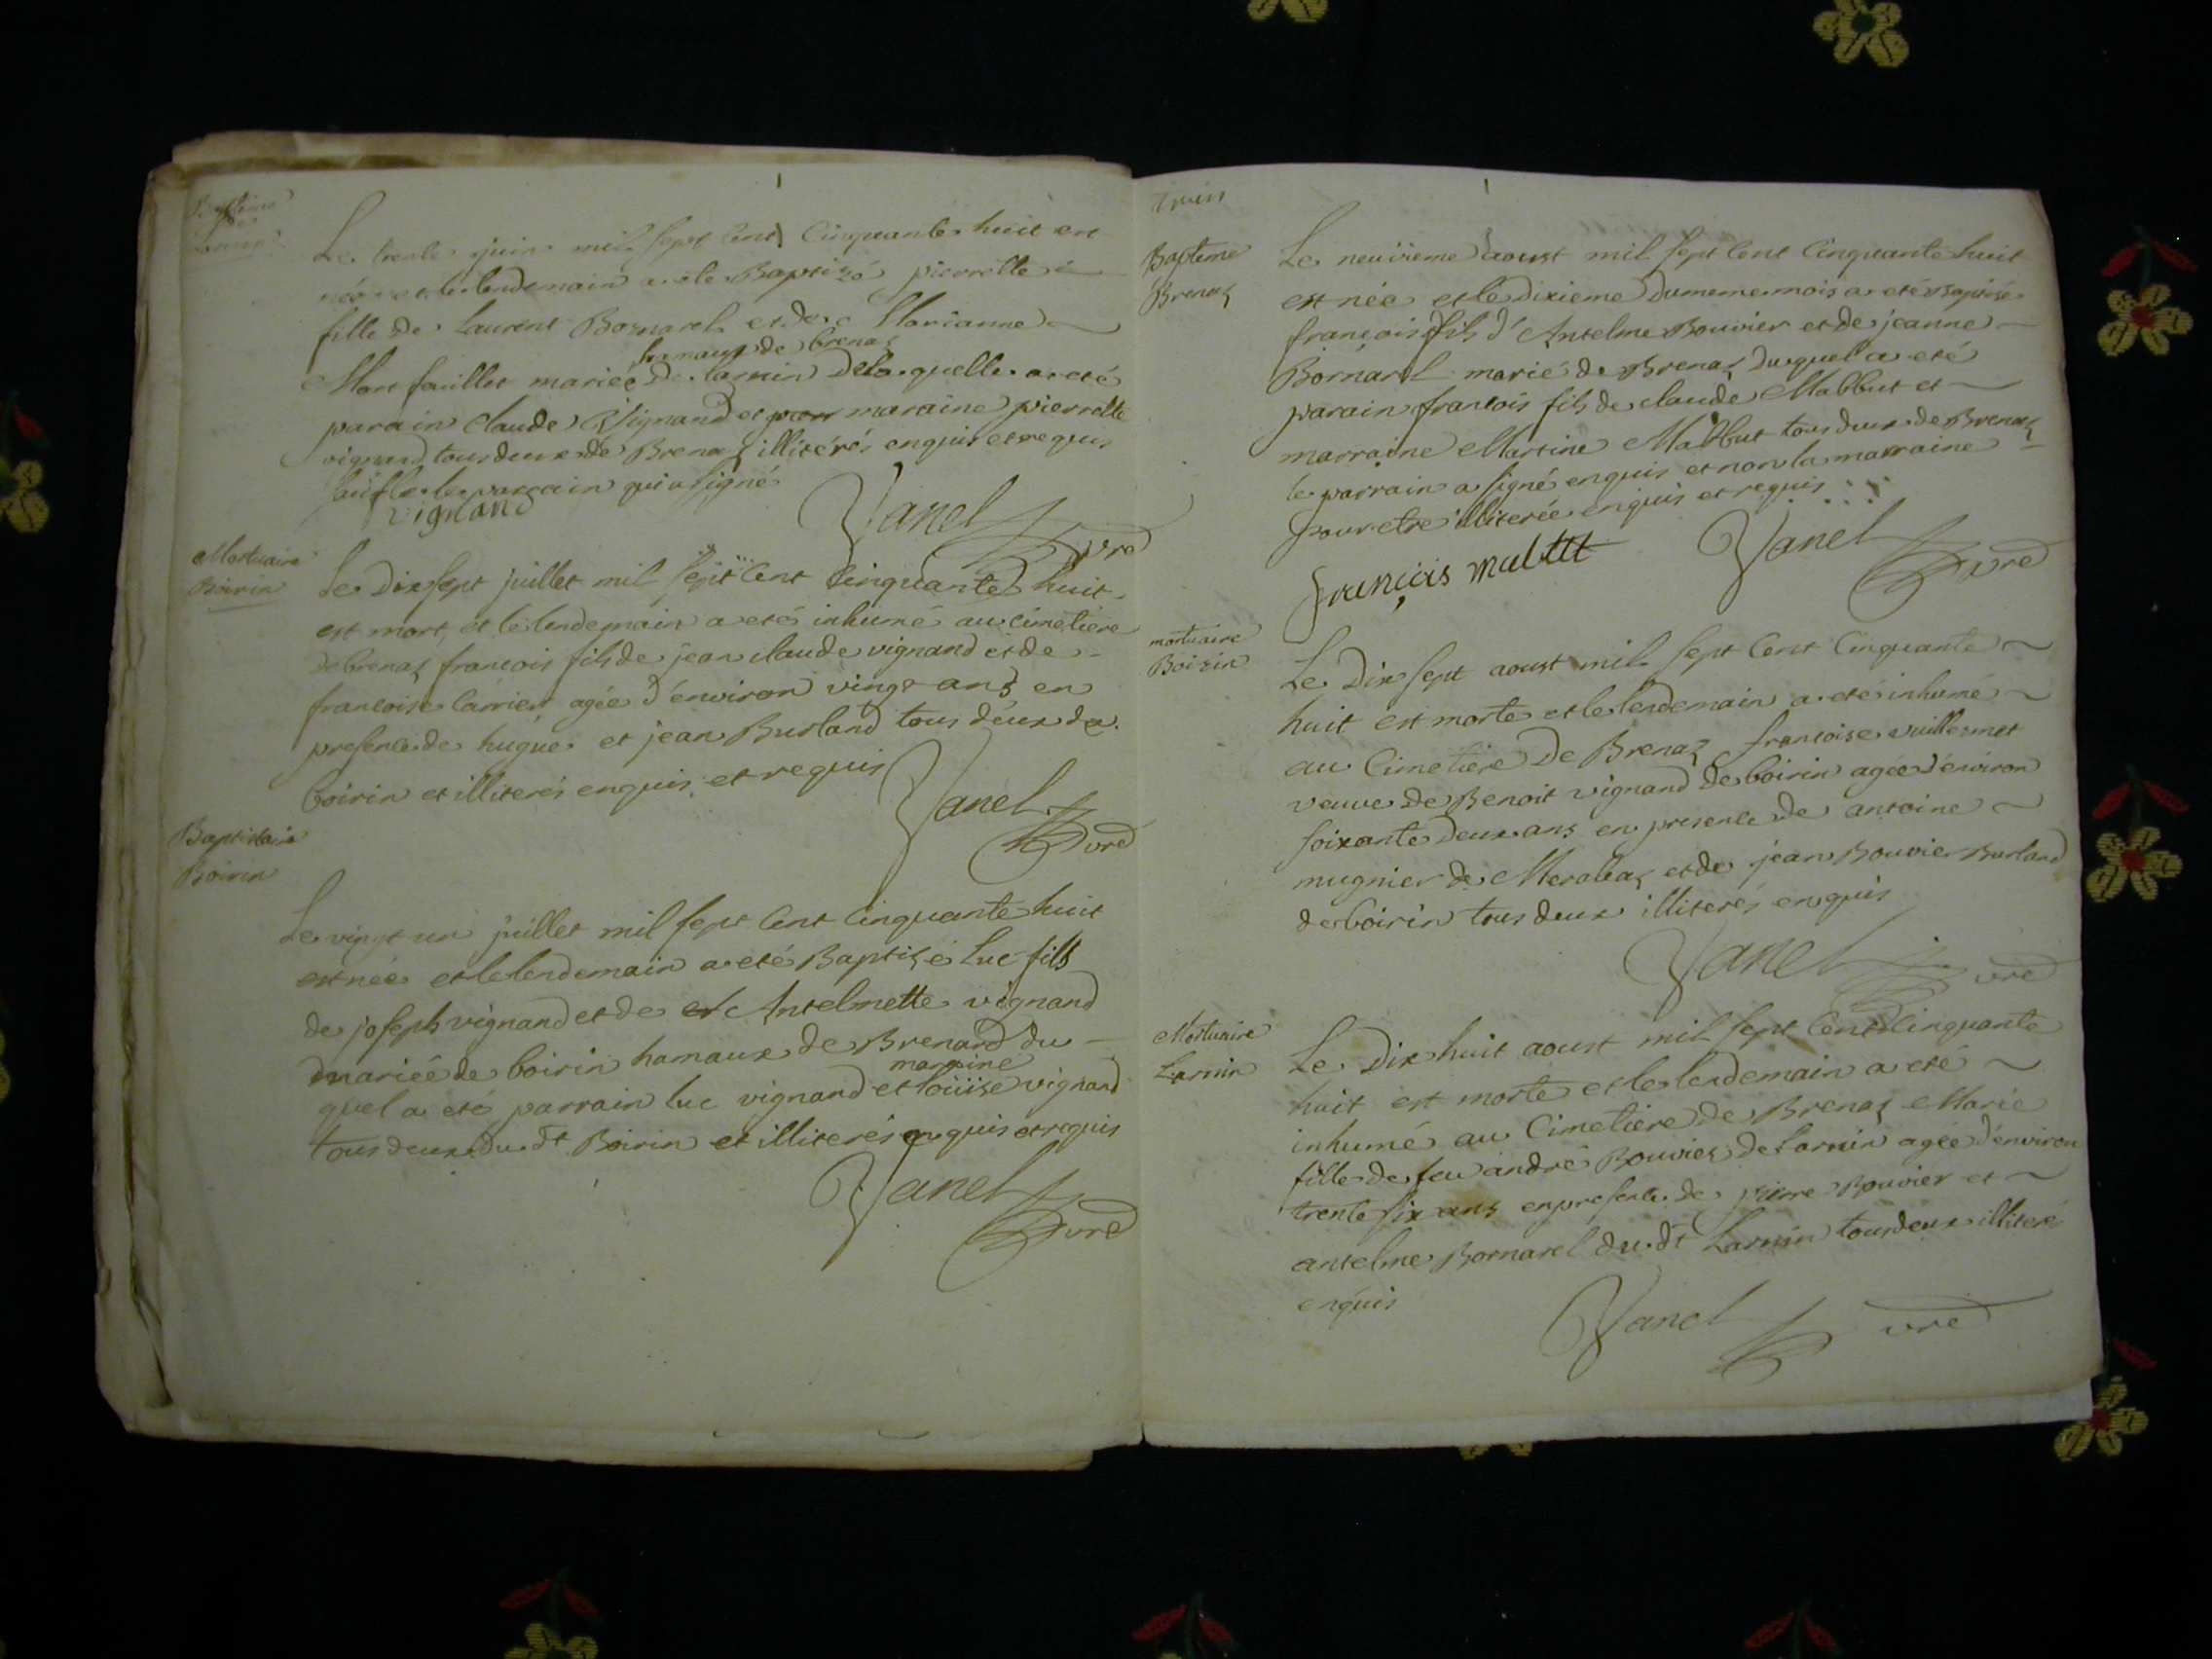 Le trente juin mil sept cent cinquante huit est
née et le lendemain a ete Baptizé pierrette
fille de Laurent Bornarel et de Marianne
hamaux de brenaz
Mart faillet mariée de larnin de laquelle a eté
parain claude Vignand et maraine pierrette
vignand tous deux de Brenaz illiterés enquis et requis
sauf le parrain qui a signé
vignand
Janel vre
Mortuaire
Boirin
Le Dixsept juillet mil sept cent cinquante huit
est mort et le lendemain a eté inhumé au cimetiere
de brenaz francois fils de jean claude vignand et de
francoise agée d'environ vingt ans en
presence de hugue et jean Burland tous deux de
boirin et illiterés enquis et requis
Janel vre
Baptistaire
Boirin
Le vingt un juillet mil sept cent cinquante huit
est née et le lendemain a eté Baptizé Luc fils
de joseph vignand et de Antelmette vignand
mariée de boirin hamaux de Brenard du
maraine
quel a eté parrain luc vignand et loüise vignand
tous deux du dt Boirin et illiterés enquis et requis
Janel vre
Bapteme
Brenaz
Le neuvieme aoust mil sept cent cinquante huit
est née et le dixieme du meme mois a eté Baptisé
francois fils d'Antelme Bouvier et de jeanne
Bornarel marié de Brenaz duquel a eté
parain francois fils de claude Mabbut et
marraine Martine Mabbut tous deux de Brenaz
le parrain a signé enquis et non la marraine
pour etre illiterée enquis et requis
françois mabut
Janel vre
mortuaire
Boirin
Le Dix sept aoust mil sept cent cinquante
huit est morte et le lendemain a eté inhumé
au cimetiere de Brenaz francoise vuillermet
veuve de Benoit vignand de boirin agée d'environ
soixante deux ans en presence de antoine
mugnier de Meraleaz et de jean Bouvier Burland
de boirin tous deux illiterés enquis
Janel vre
Mortuaire
Larnin
Le Dix huit aoust mil sept cent cinquante
huit est morte et le lendemain a eté
inhumé au cimetiere de Brenaz Marie
fille de feu andré Bouvier de Larnin agée d'environ
trente six ans en presence de pierre Bouvier et
antelme Bornarel du dt Larnin tous deux illiteré
enquis
Janel vre